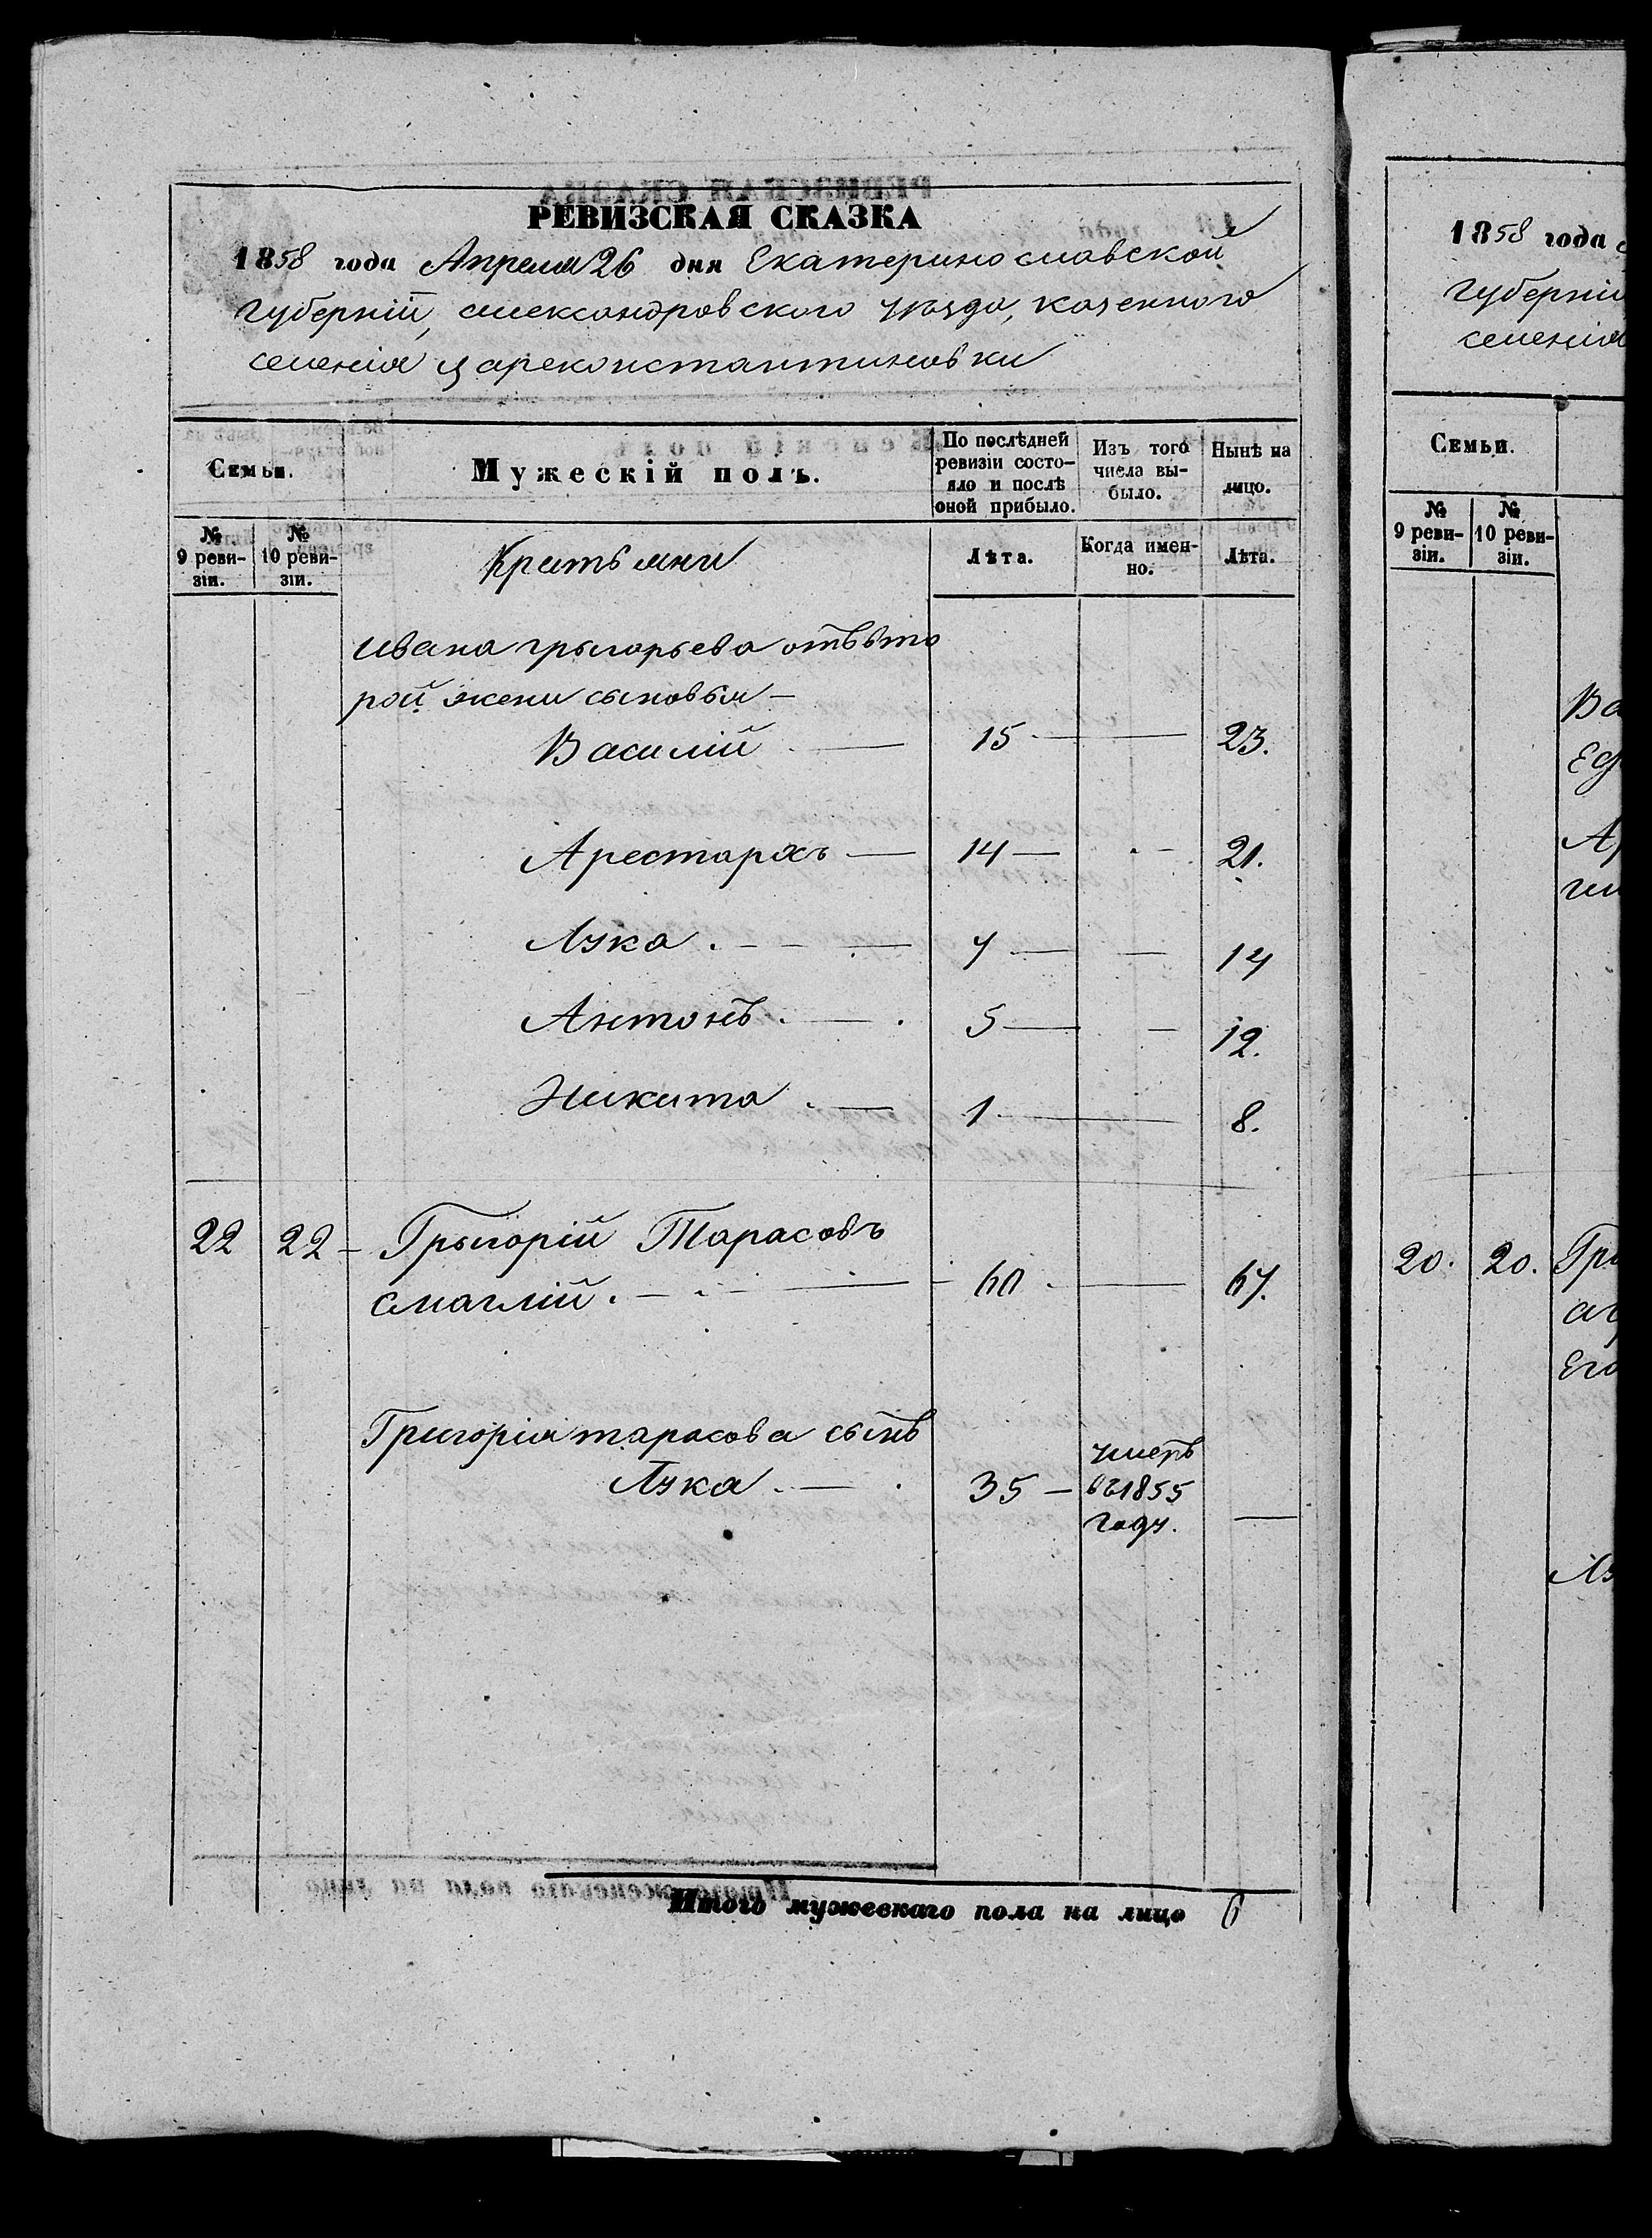 РЕВИЗСКАЯ СКАЗКА
1858 года Апреля 26 дня Екатеринославской
губерніи, александровского уѣзда, казенного
селенія цареконстантиновки
Семьи.
Мужескій полъ.
По послѣдней ревизіи состояло и послѣ оной прибыло.
Изъ того числа выбыло.
Нынѣ на лицо.
№ 9 ревизіи.
№ 10 ревизіи.
Лѣта.
Когда именно.
Лѣта.
ивана грыгорьева отъвто
рой жени сыновья —
Василій — 15 — 23.
Арестархъ — 14 — 21.
Лука — 7 — 14
Антонъ — 5 — 12.
Никита — 1 — 8.
22 22 — Грыгорій Тарасовъ
смаглій — 60 — 67.
Григорія тарасова сынъ
Лука — 35 — умеръ
въ 1855
году. —
Итого мужескаго пола на лицо 6
1858 года
губерніи
селенія
Семьи.
№ 9 ревизіи.
№ 10 ревизіи.
Ва
20. 20. Гри
Его